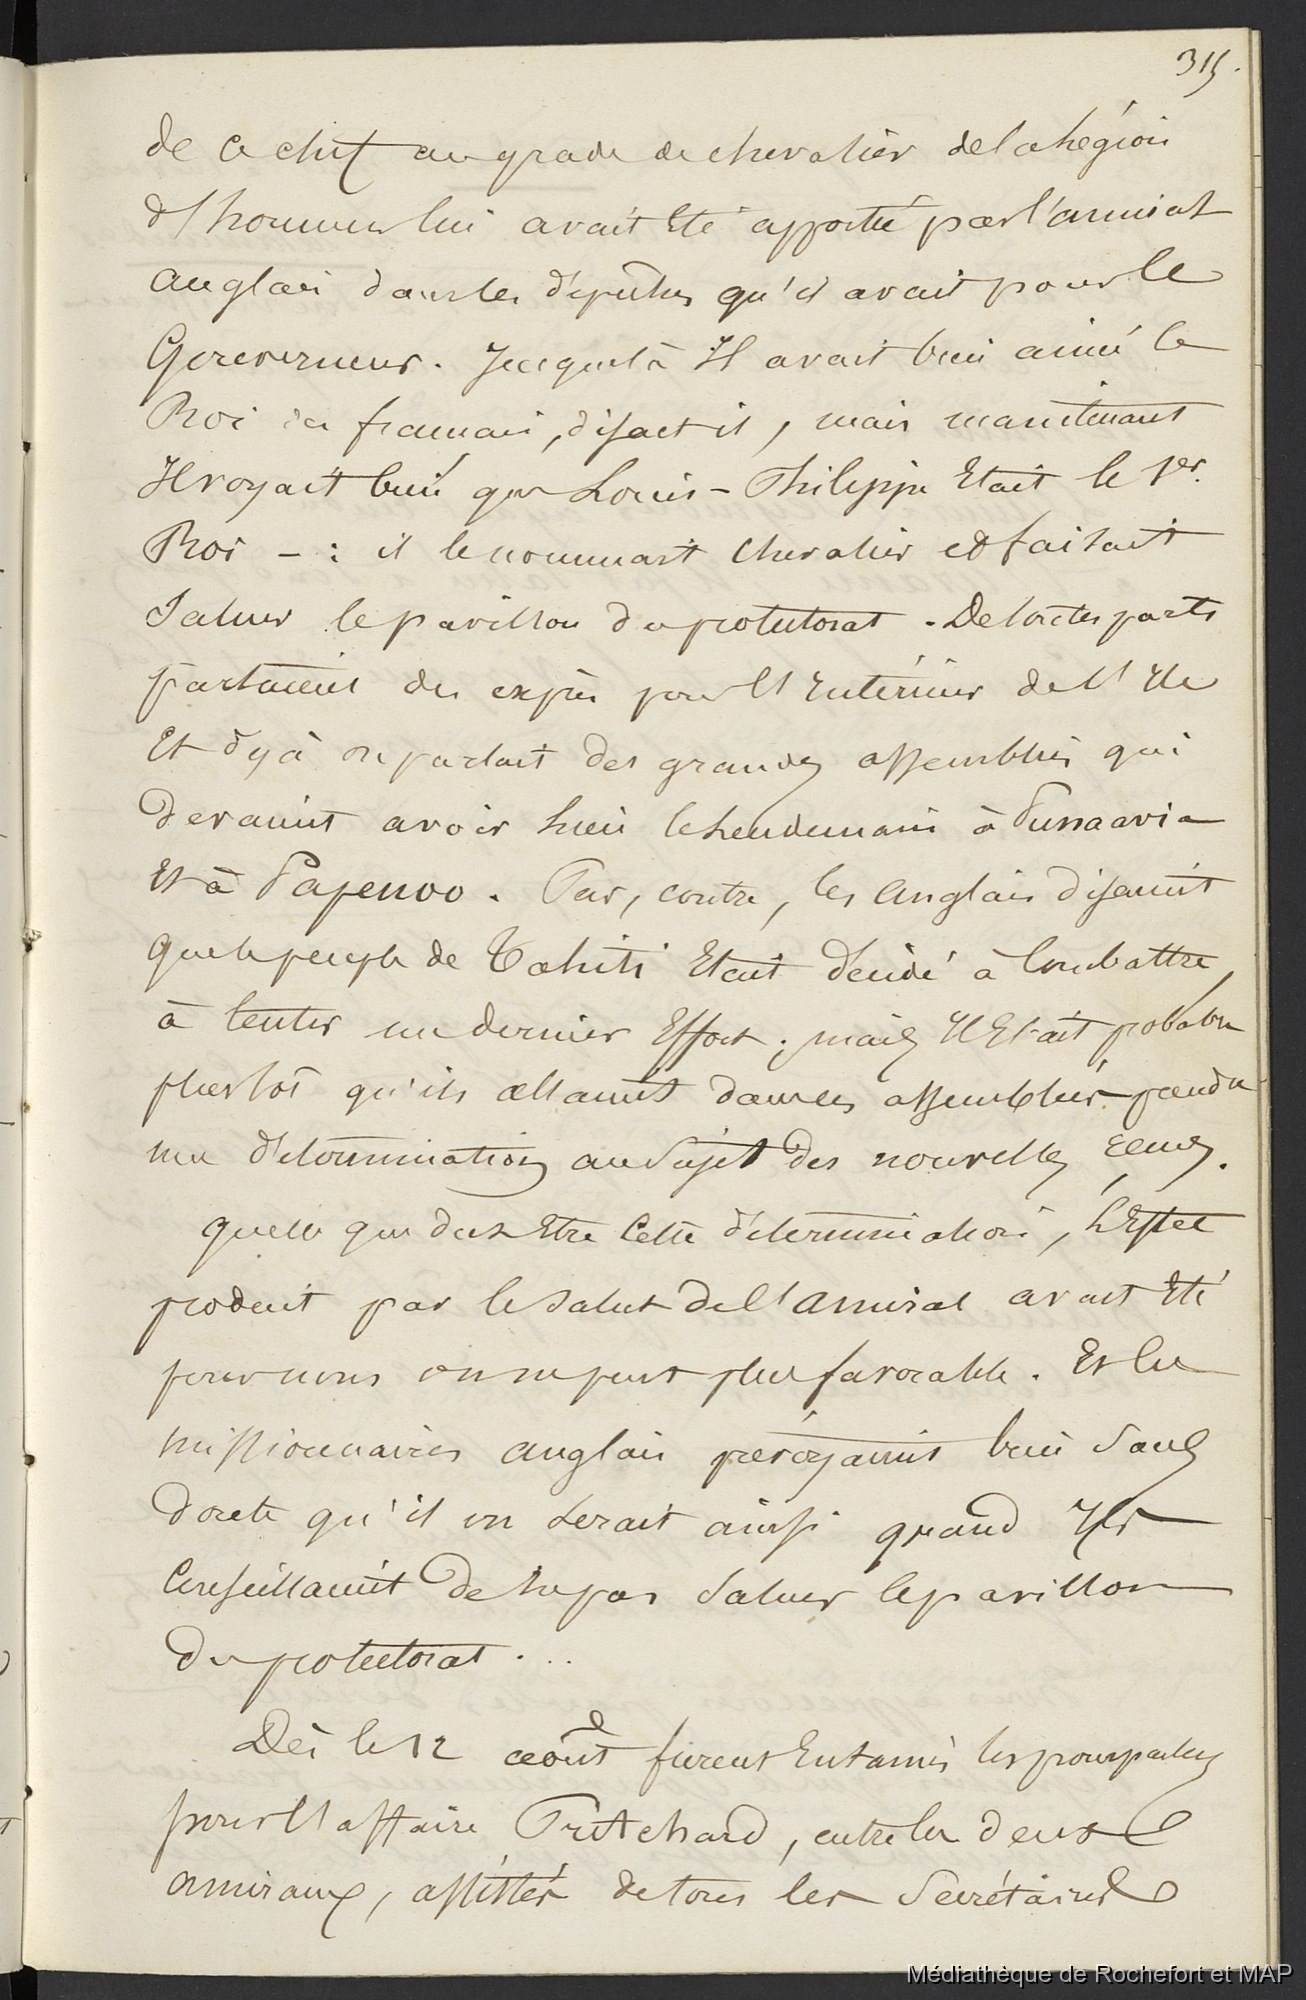 315.
de ce chef au grade de chevalier de la Légion
d'honneur lui avait Eté apporté par l'amiral
anglais dans les dépêches qu'il avait pour le
Gouverneur. Jusque là Il avait bien aimé le
Roi des français, disait il, mais maintenant
Il voyait bien que Louis-Philippe Etait le 1er.
Roi - : il le nommait Chevalier et faisait
Saluer le pavillon du protectorat. De toutes parts
partaient des exprès pour l'Intérieur de l'Ile
Et déjà on parlait des grandes assemblées qui
devaient avoir lieu le lendemain à Punaavia
Et à Papenoo. Par, contre, les anglais disaient
que le peuple de Tahiti Etait décidé à Combattre,
à tenter un dernier Effort; mais Il Etait probable
plustot qu'ils allaient dans les assemblées prendre
une détermination au Sujet des nouvelles reçues.
quelle que dut Etre Cette détermination, l'Effet
produit par le salut de l'amiral avait Eté
pour nous on ne peut plus favorable. Et les
missionnaires anglais prévoyaient bien Sans
doute qu'il en serait ainsi quand Ils
Conseillaient de ne pas Saluer le pavillon
du protectorat...
Dès le 12 août furent Entamés les pourparlers
pour l'affaire Pritchard, entre les deux
amiraux, assistés de tous les Secrétaires
Médiathèque de Rochefort et MAP